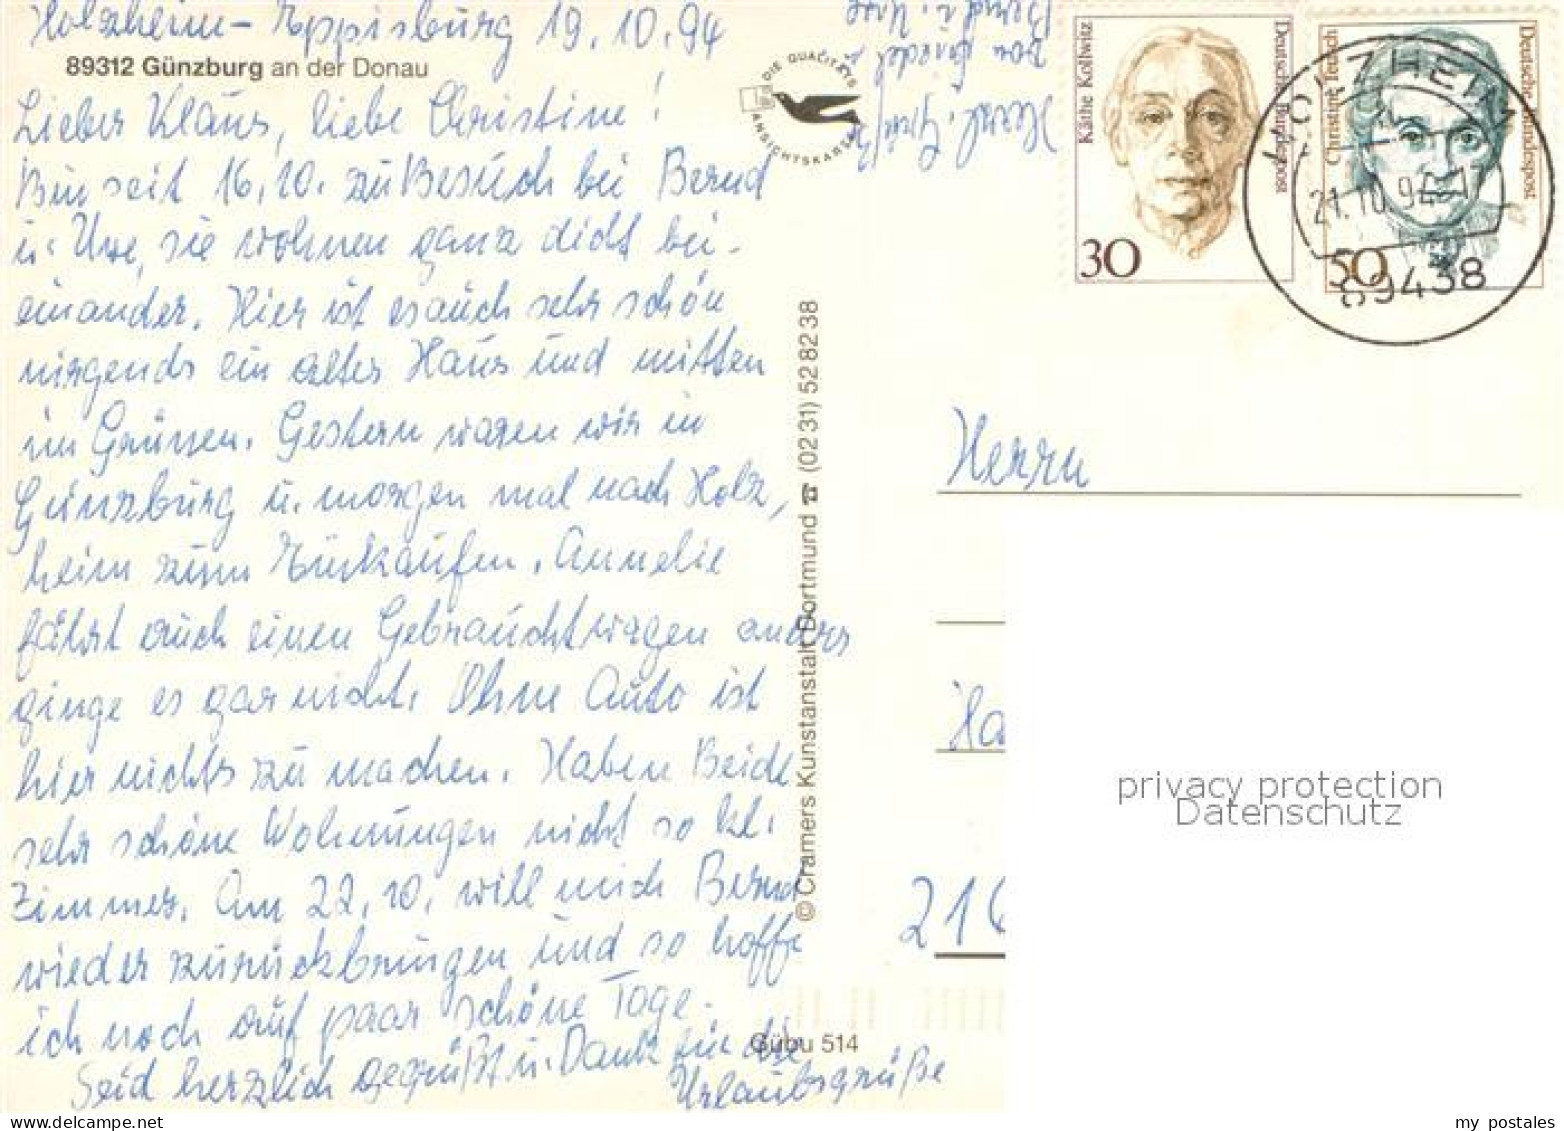 Holzheim-Eppisburg 19.10.94
89312 Günzburg an der Donau
Lieber Klaus, liebe Christine!
Bin seit 16.10. zu Besuch bei Bernd
u. Uwe, sie wohnen ganz dicht bei-
einander. Hier ist es auch sehr schön
nirgends ein altes Haus und mitten
im Grünen. Gestern waren wir in
Günzburg u. morgen mal nach Holz,
heim zum Einkaufen. Annelie
fährt auch einen Gebrauchtwagen anders
ginge es gar nicht. Ohne Auto ist
hier nichts zu machen. Haben Beide
sehr schöne Wohnungen nicht so kl.
Zimmer. Am 22.10. will mich Bernd
wieder zurückbringen und so hoffe
ich noch auf paar schöne Tage.
Seid herzlich gegrüßt u. Dank für die
Urlaubsgrüße
Herzl. Grüße
von
Bernd u. Uwe
DIE QUALITÄTS
ANSICHTSKARTE
© Cramers Kunstanstalt Dortmund ☎ (0231) 528238
Gübu 514
Käthe Kollwitz
Deutsche Bundespost
30
Christine Teusch
Deutsche Bundespost
50
HOLZHEIM
21.10.94
89438
Herrn
Ha
216
privacy protection
Datenschutz
my postales